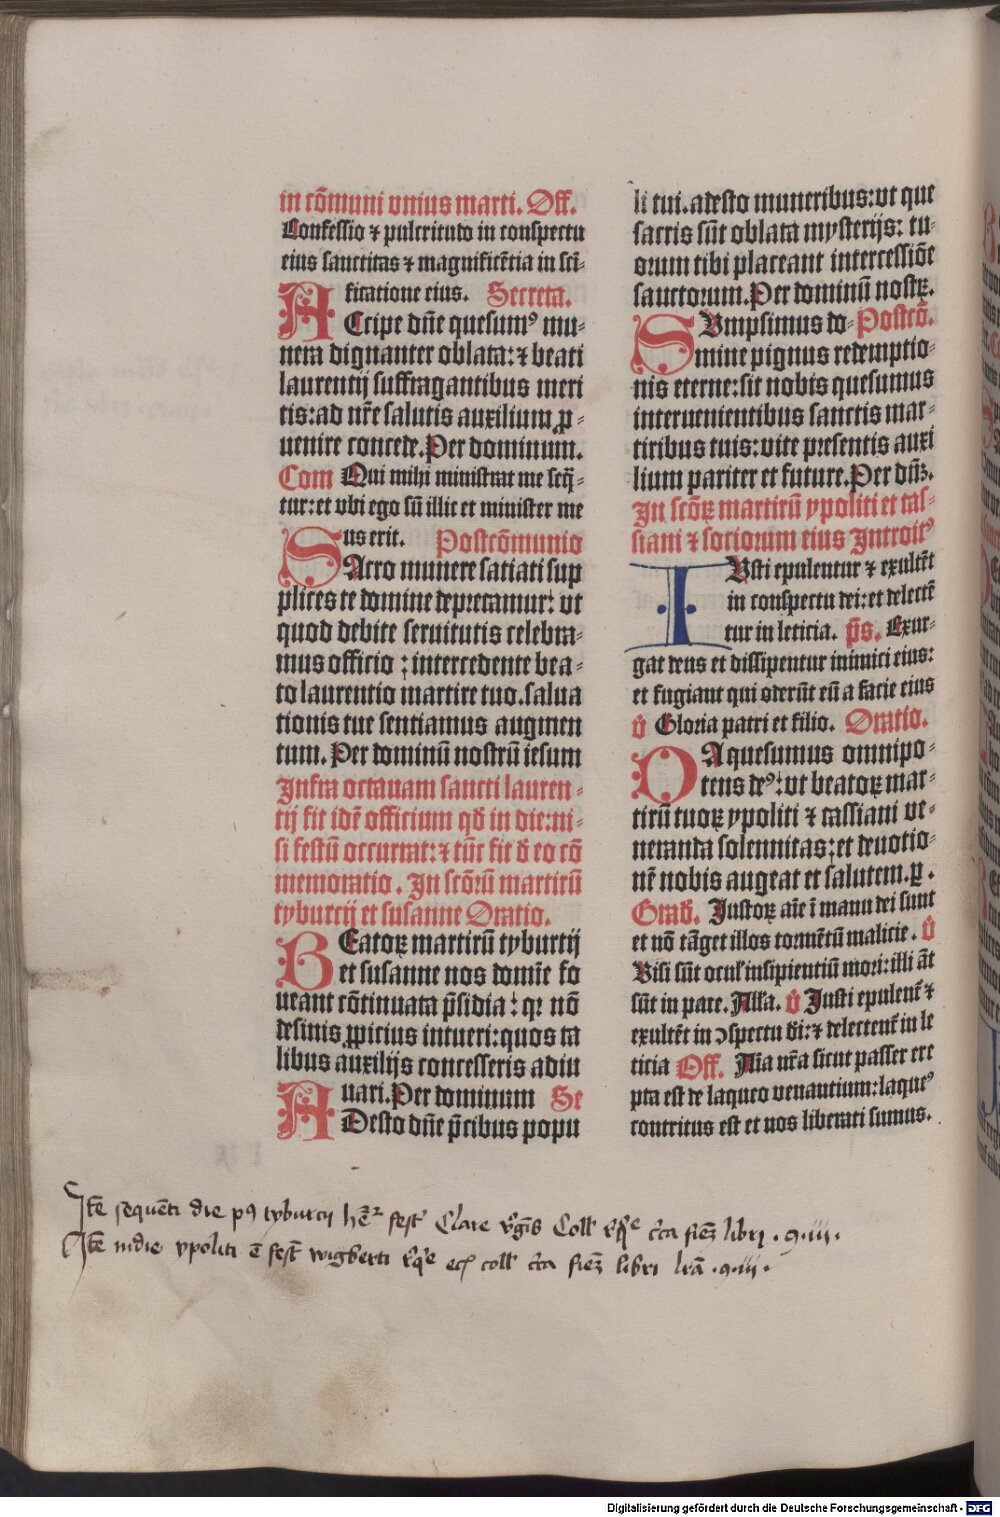 in cōmuni vnius marti. Off.
Confessio ⁊ pulcritudo in conspectu
eius sanctitas ⁊ magnificētia in scī-
ficatione eius. Secreta.
ACcipe dn̄e quesumꝰ mu-
nera dignanter oblata: ⁊ beati
laurentij suffragantibus meri
tis: ad nr̄e salutis auxilium ꝓ-
uenire concede. Per dominum.
Com Qui mihi ministrat me seq̄-
tur: et vbi ego sū illic et minister me
us erit. Postcōmunio
SAcro munere satiati sup
plices te domine deprecamur: vt
quod debite seruitutis celebra-
mus officio : intercedente bea-
to laurentio martire tuo. salua
tionis tue sentiamus augmen
tum. Per dominū nostrū iesum
Infra octauam sancti lauren-
tij fit idē officium qd̄ in die: ni-
si festū occurrat: ⁊ tūc fit d̄ eo cō
memoratio. In scōrū martirū
tyburcij et susanne Oratio.
BEatoꝝ martirū tyburtij
et susanne nos domīe fo
ueant cōtinuata p̄sidia : qꝛ nō
desinis ꝓpicius intueri: quos ta
libus auxilijs concesseris adiu
uari. Per dominum Se
ADesto dn̄e p̄cibus popu
li tui. adesto muneribus: vt que
sacris sūt oblata mysterijs: tu-
orum tibi placeant intercessiōe
sanctorum. Per dominū nostꝝ.
SVmpsimus do- Postcō.
mine pignus redemptio-
nis eterne: sit nobis quesumus
interuenientibus sanctis mar-
tiribus tuis: vite presentis auxi
lium pariter et future. Per dn̄ꝫ.
In scōꝝ martirū ypoliti et cas-
siani ⁊ sociorum eius Introitꝰ
IVsti epulentur ⁊ exultēt
in conspectu dei: et delectē
tur in leticia. p̄s. Exur-
gat deus et dissipentur inimici eius:
et fugiant qui oderūt eū a facie eius
v̄ Gloria patri et filio. Oratio.
DA quesumus omnipo-
tens deꝰ: vt beatoꝝ mar-
tirū tuoꝝ ypoliti ⁊ cassiani ve-
neranda solennitas: et deuotio-
nē nobis augeat et salutem. ꝑ.
Grad̄. Justoꝝ aīe ī manu dei sunt
et nō tāget illos tormētū malicie. v̄
Visi sūt ocul̓ insipientiū mori: illi āt
sūt in pace. Alła. v̄ Justi epulent̄ ⁊
exultēt in ↄspectu di: ⁊ delectent̄ in le
ticia Off. Aīa nr̄a sicut passer ere
pta est de laqueo venantium: laqueꝰ
contritus est et nos liberati sumus.
Itē sequēti die pꝰ tyburcij festꝭ Clare v̓gīs Coll̓ libri . 9 . iiii .
Itē in die ypoliti ē festꝭ wigberti coll̓ libri . 9 . iii .
Digitalisierung gefördert durch die Deutsche Forschungsgemeinschaft - DFG